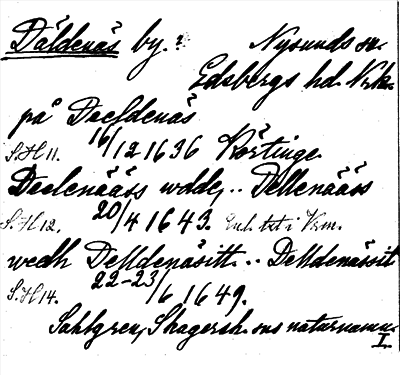 Däldenäs by.? Nysunds sn.
Edsbergs hd. Nrk.
på Deeldenäs
S.H 11. 16/12 1636 Körtinge
Deelenääss udde, .. Dellenääss
S.H 12. 20/4 1643. Enl. tit i Vrm.
wedh Delldenäsitt .. Delldenässit
S.H 14. 22-23/6 1649.
Sahlgren, Skagersh. sns naturnamn
I.